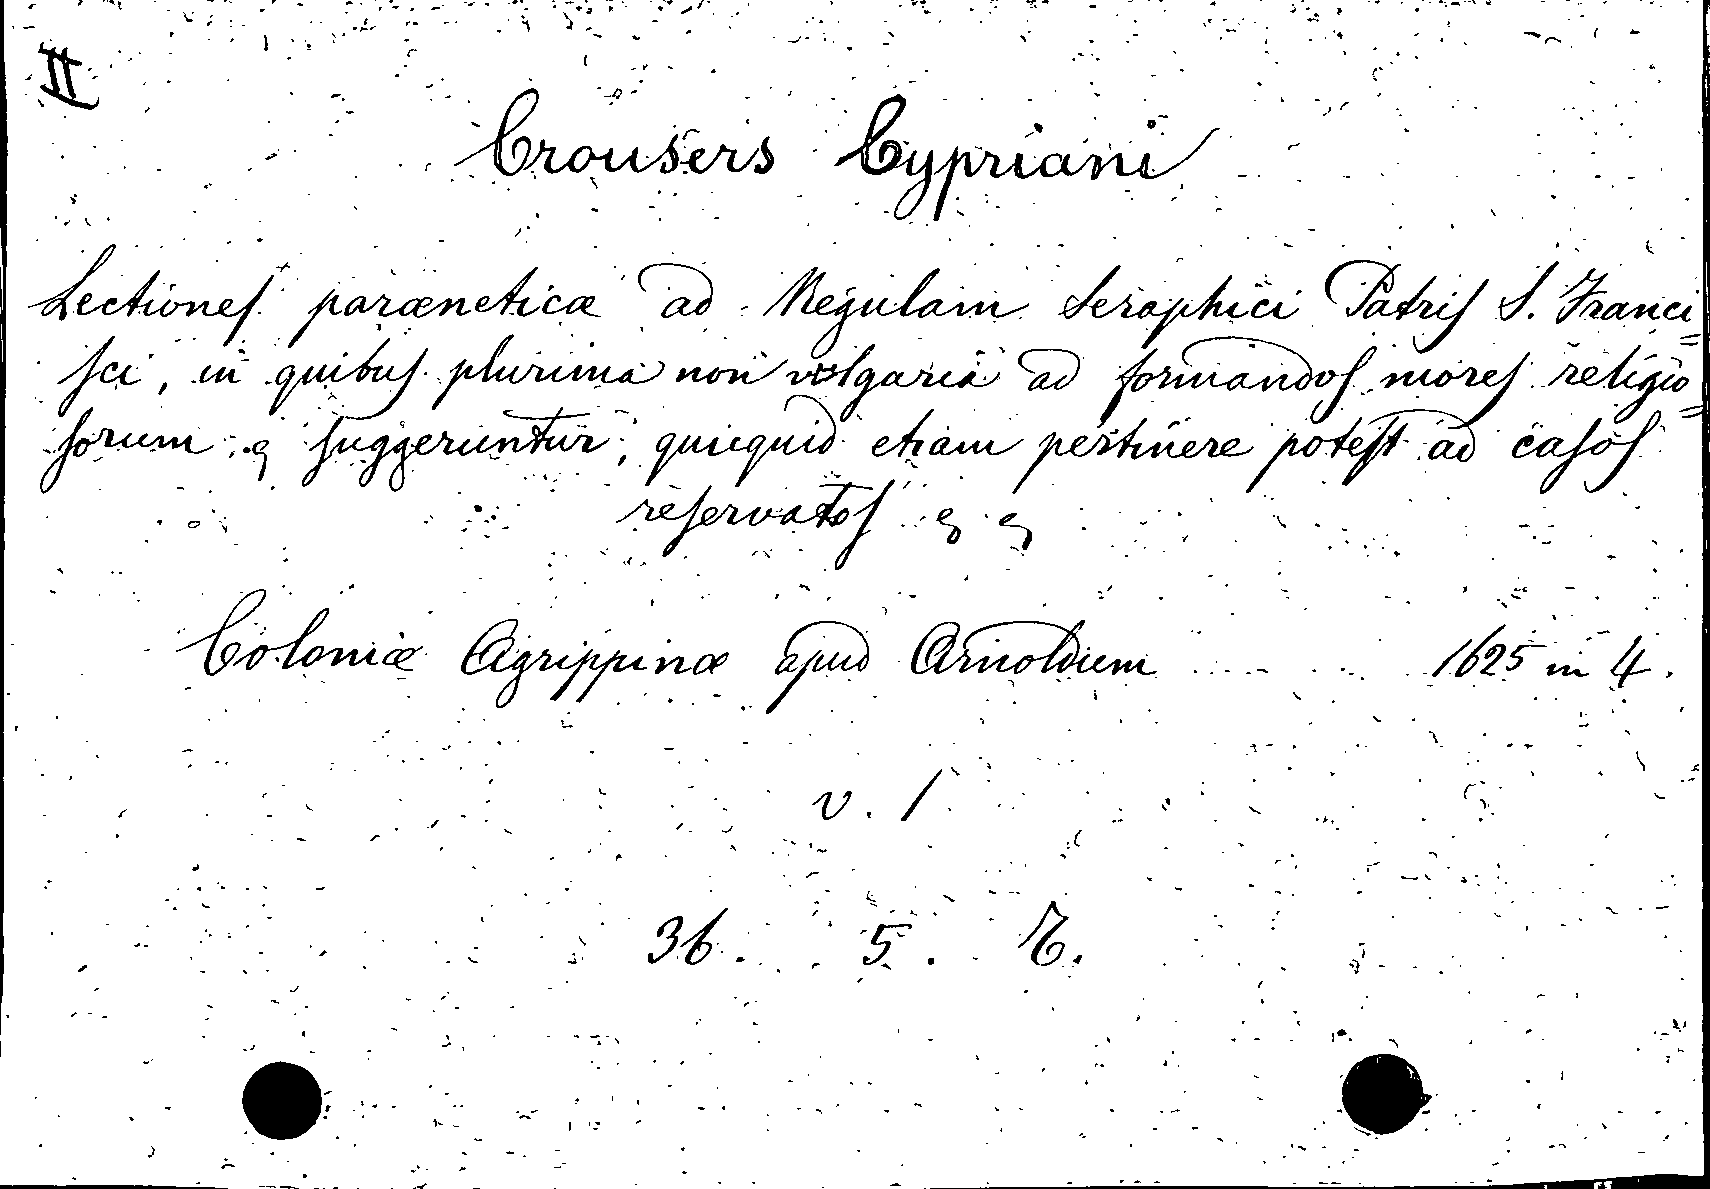 II
Crousers Cypriani
Lectiones paræneticæ ad Regulam Seraphici Patris S. Franci=
sci, in quibus plurima non vulgaria ad formandos mores religio=
sorum suggeruntur, quicquid etiam pertinere potest ad casos
reservatos
Coloniæ Agrippinæ apud Arnoldum 1625 in 4.
v. 1
36. 5.